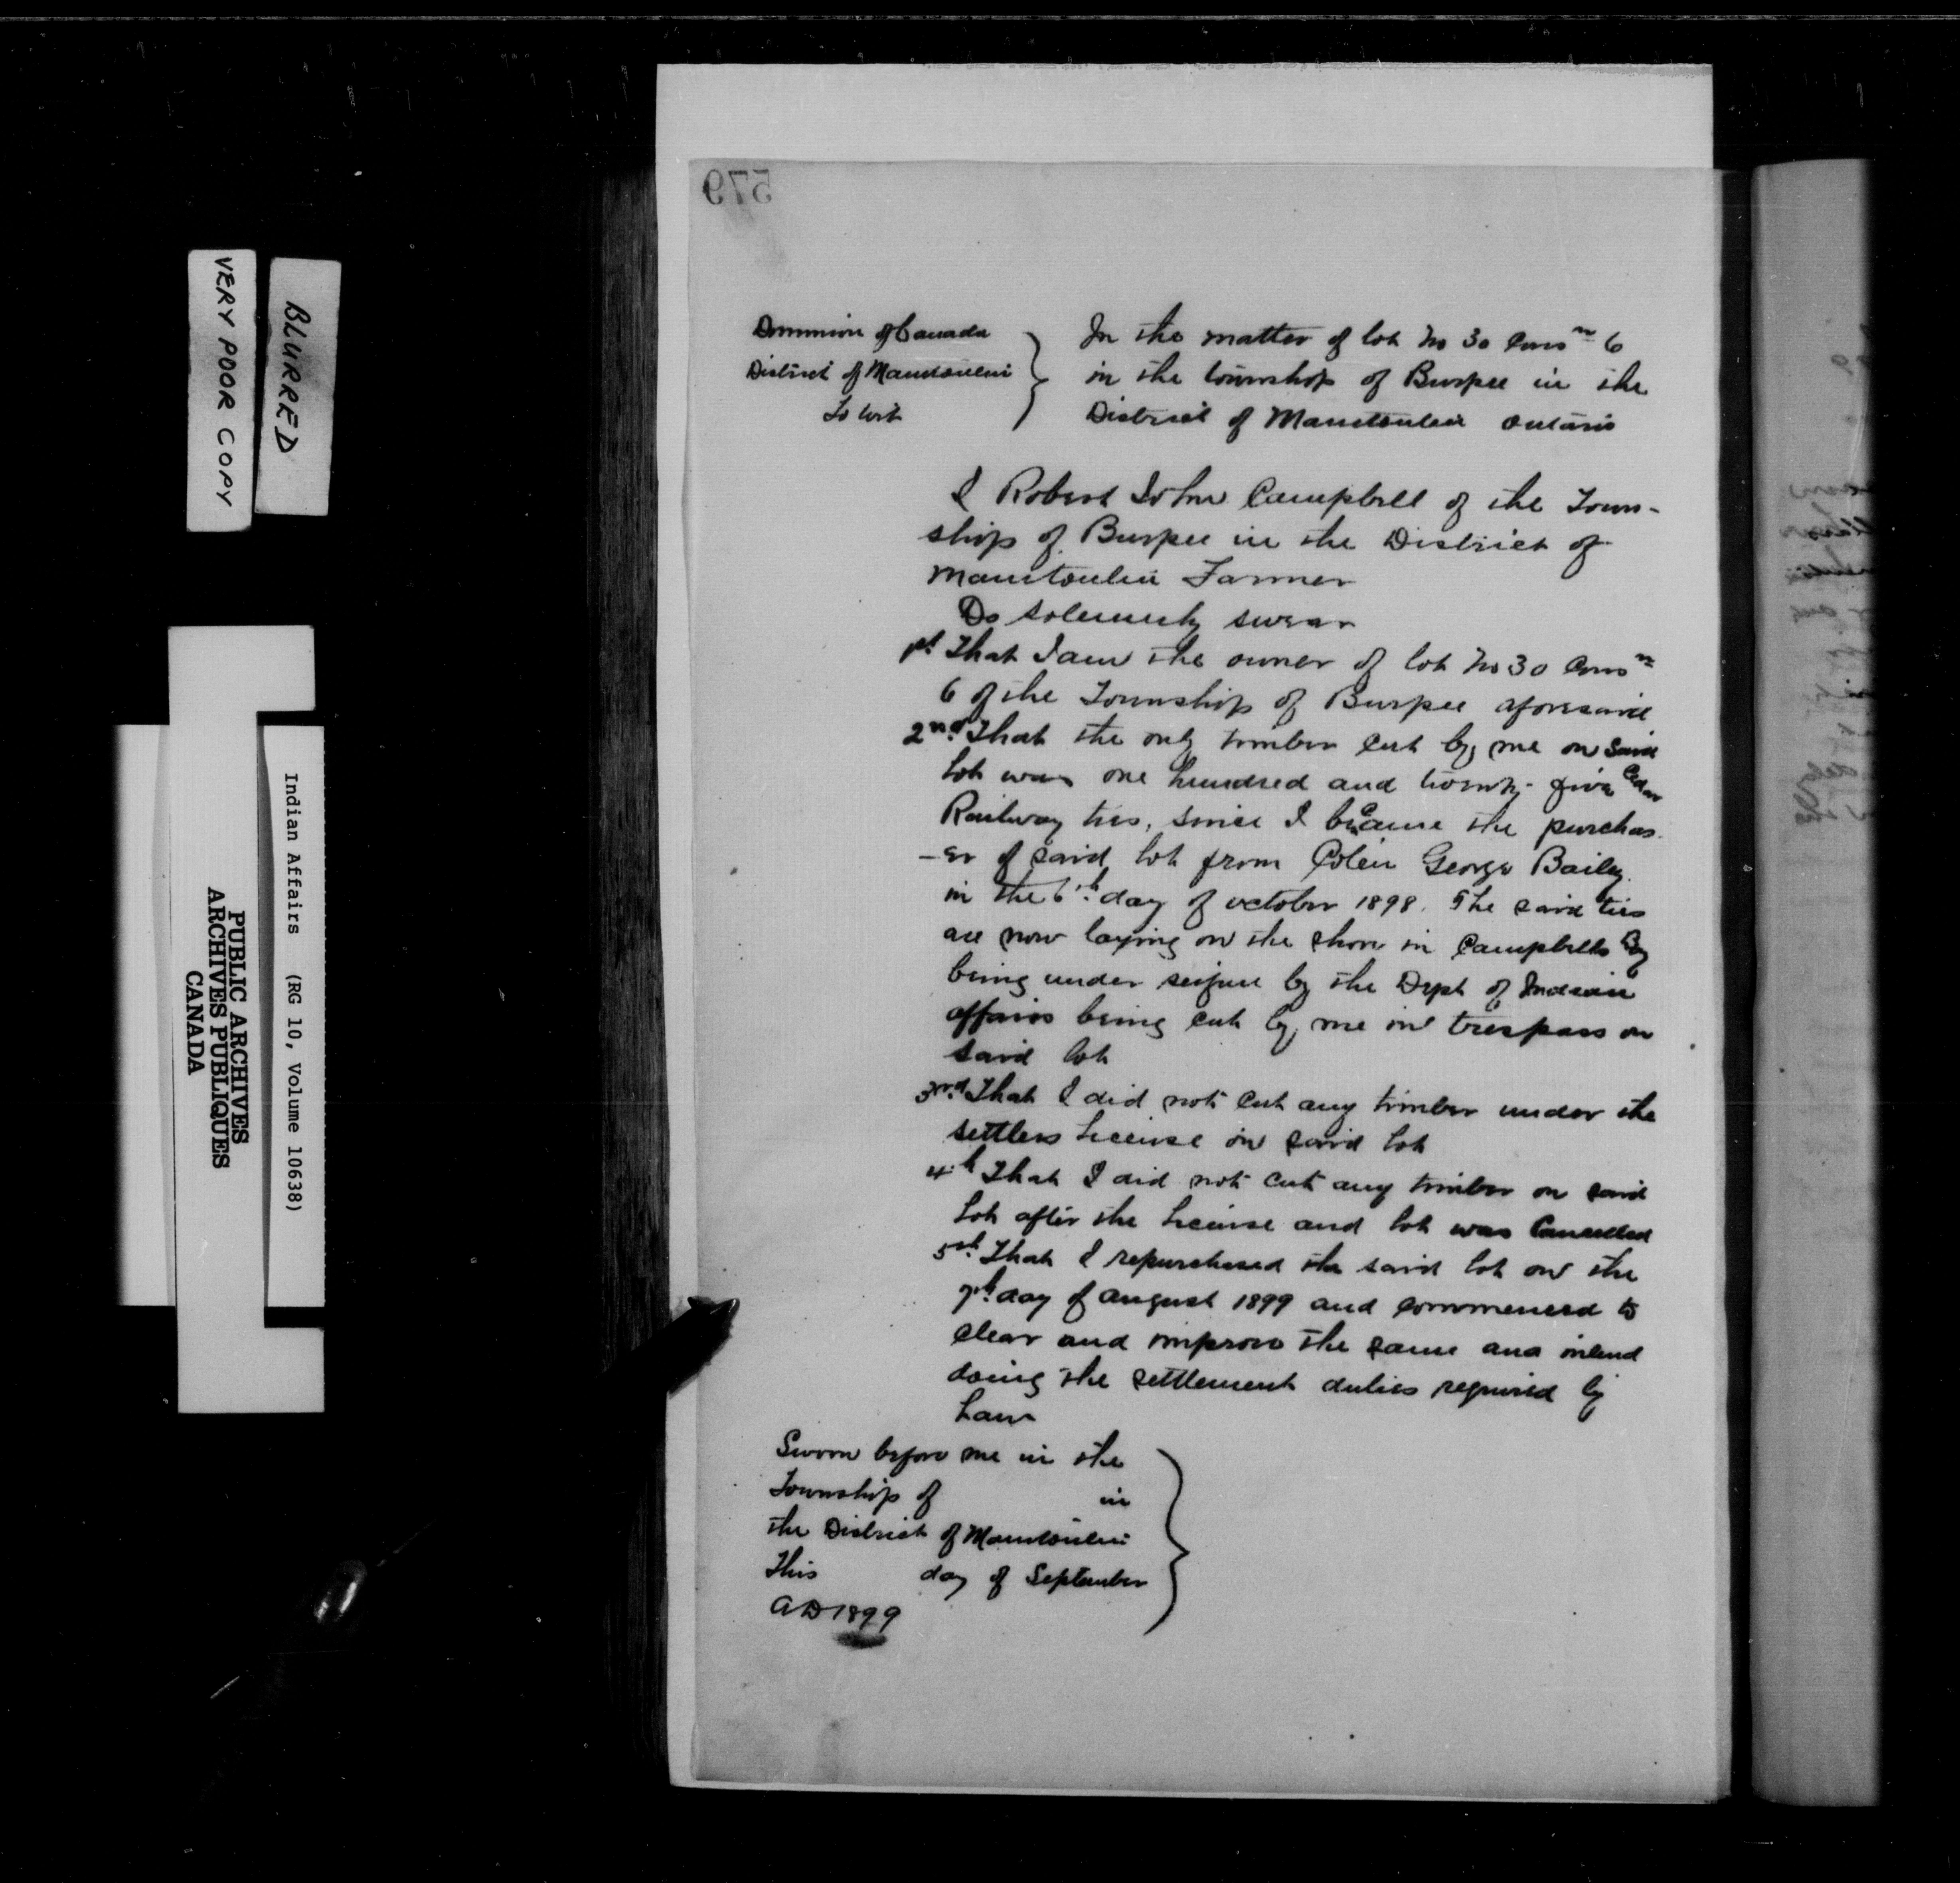 579
VERY POOR COPY
BLURRED
Indian Affairs (RG 10, Volume 10638)
PUBLIC ARCHIVES
ARCHIVES PUBLIQUES
CANADA
Dominion of Canada
District of Manitoulin
To wit
In the matter of lot No 30 Consn 6
in the township of Burpee in the
District of Manitoulin Ontario
I Robert John Campbell of the Town-
ship of Burpee in the District of
Manitoulin Farmer
Do solemnly swear
1st That I am the owner of lot No 30 Consn
6 of the Township of Burpee aforesaid
2nd That the only timber cut by me on said
Lot was one hundred and twenty-five Cedar
Railway ties, since I became the purchas
-er of said lot from Colin George Bailey
in the 6th day of October 1898. The said ties
are now laying on the shore in Campbells Bay
being under seizure by the Dept of Indian
affairs being cut by me in trespass on
said lot
3rd That I did not cut any timber under the
settlers license on said lot
4th That I did not cut any timber on said
Lot after the license and lot was Cancelled
5th That I repurchased the said lot on the
7th day of august 1899 and commenced to
clear and improve the same and intend
doing the settlement duties required by
Law
Sworn before me in the
Township of in
the District of Manitoulin
This day of September
AD 1899